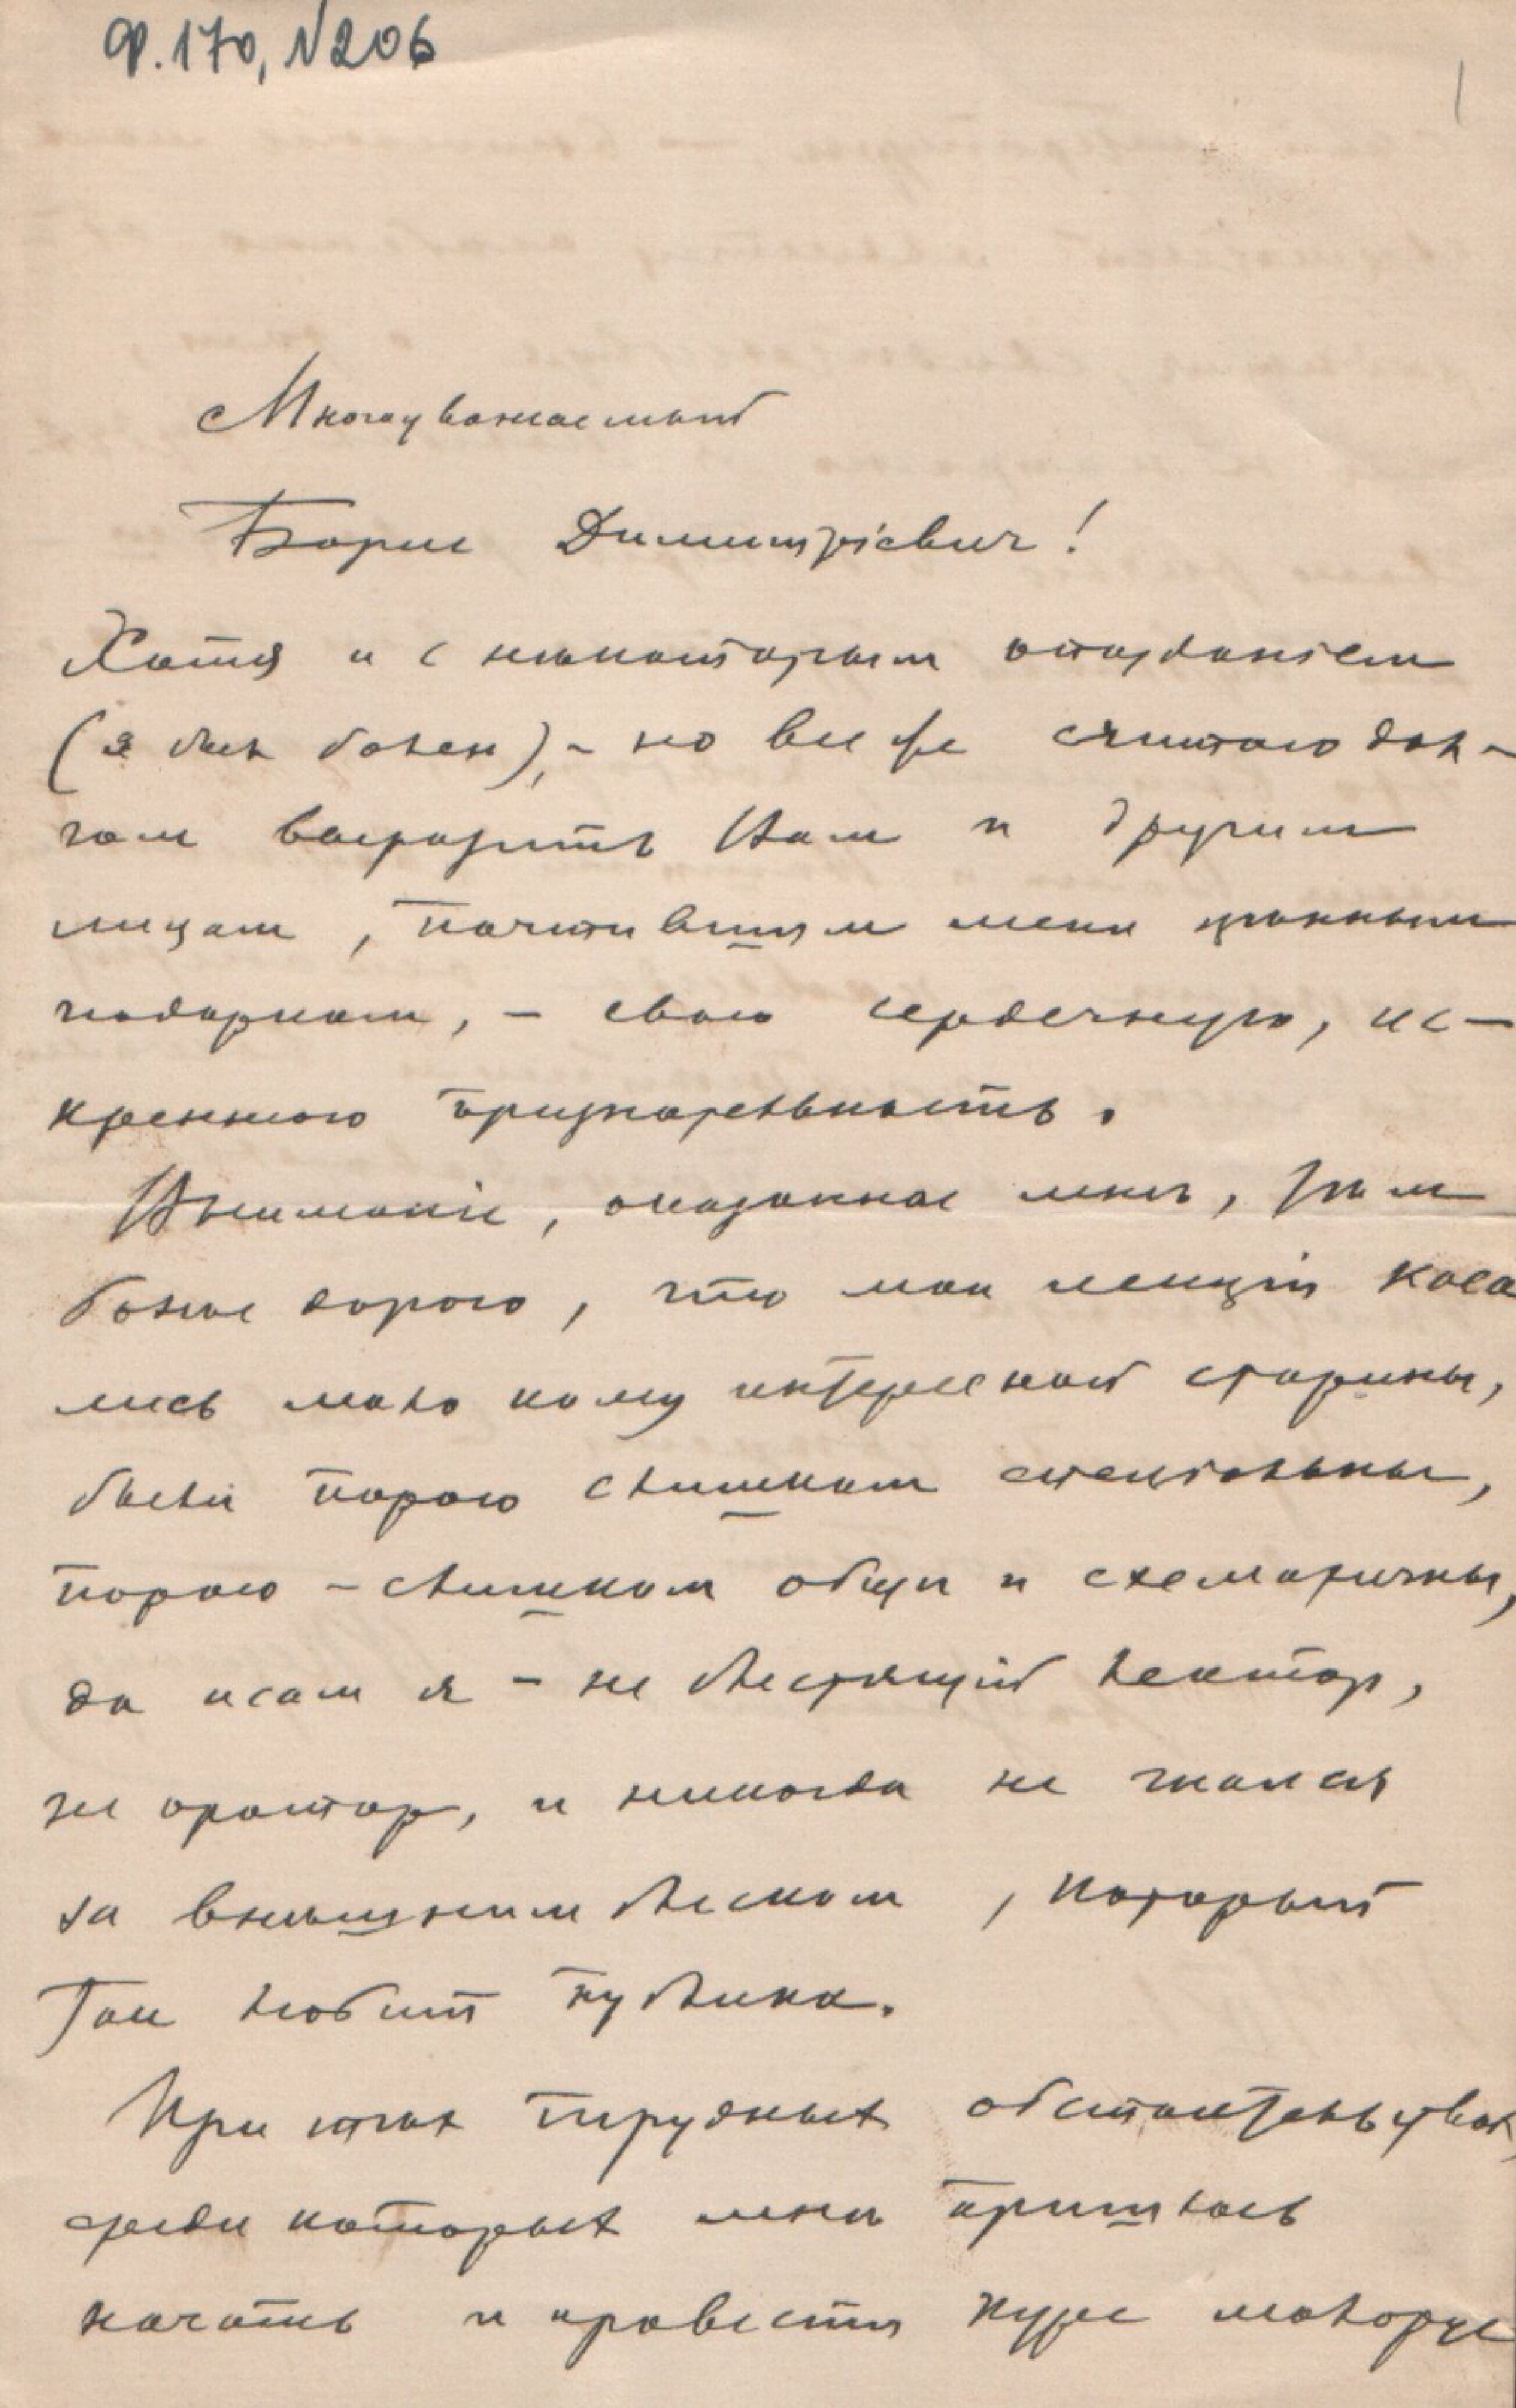 Ф. 170, №206
1
Многоуважаемый
Борис Димитріевич!
Хотя и с нѣкоторым опозданіем
(я был болен), – но все же считаю дол-
гом выразить Вам и другим
лицам, почтившим меня цѣнным
подарком, – свою сердечную, ис-
креннюю признательность.
Вниманіе, оказанное мнѣ, тѣм
более дорого, что мои лекціи каса
лись мало кому интересной старины,
были порою слишком спеціальны,
порою – слишком общи и схематичны,
да и сам я – не блестящій лектор,
не оратор, и никогда не гнался
за внѣшним блеском, который
так любит публика.
При тѣх трудных обстоятельствах,
среди которых мнѣ пришлось
начать и провести курс малорус